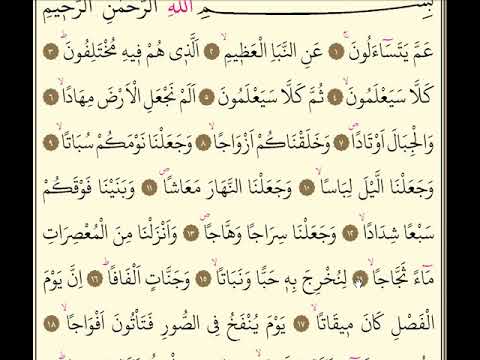 بِسْمِ اللّٰهِ الرَّحْمٰنِ الرَّحٖيمِ
عَمَّ يَتَسَٓاءَلُونَۚ ١ عَنِ النَّبَأِ الْعَظٖيمِۙ ٢ اَلَّذٖى هُمْ فٖيهِ مُخْتَلِفُونَۜ ٣
كَلَّا سَيَعْلَمُونَۙ ٤ ثُمَّ كَلَّا سَيَعْلَمُونَ ٥ اَلَمْ نَجْعَلِ الْاَرْضَ مِهَادًاۙ ٦
وَالْجِبَالَ اَوْتَادًاۖ ٧ وَخَلَقْنَاكُمْ اَزْوَاجًاۙ ٨ وَجَعَلْنَا نَوْمَكُمْ سُبَاتًاۙ ٩
وَجَعَلْنَا الَّيْلَ لِبَاسًاۙ ١٠ وَجَعَلْنَا النَّهَارَ مَعَاشًاۖ ١١ وَبَنَيْنَا فَوْقَكُمْ
سَبْعًا شِدَادًاۙ ١٢ وَجَعَلْنَا سِرَاجًا وَهَّاجًاۖ ١٣ وَاَنْزَلْنَا مِنَ الْمُعْصِرَاتِ
مَٓاءً ثَجَّاجًاۙ ١٤ لِنُخْرِجَ بِهٖ حَبًّا وَنَبَاتًاۙ ١٥ وَجَنَّاتٍ اَلْفَافًاۜ ١٦ اِنَّ يَوْمَ
الْفَصْلِ كَانَ مٖيقَاتًاۙ ١٧ يَوْمَ يُنْفَخُ فِى الصُّورِ فَتَأْتُونَ اَفْوَاجًاۙ ١٨